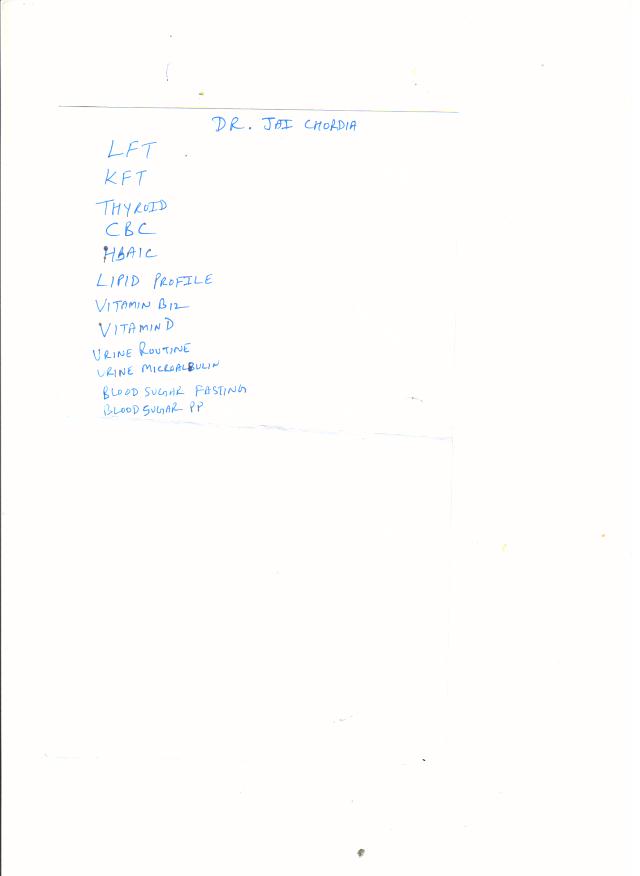 DR. JAI CHORDIA
LFT
KFT
THYROID
CBC
HBA1C
LIPID PROFILE
VITAMIN B12
VITAMIN D
URINE ROUTINE
URINE MICROALBULIN
BLOOD SUGAR FASTING
BLOOD SUGAR PP